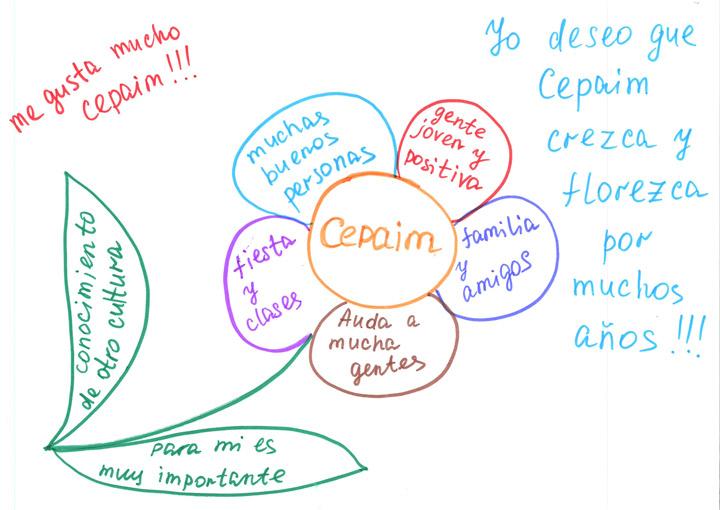 me gusta mucho
cepaim!!!
muchas
buenos
personas
gente
joven y
positiva
Cepaim
fiesta
y
clases
familia
y
amigos
Auda a
mucha
gentes
conocimiento
de otro cultura
para mi es
muy importante
Yo deseo que
Cepaim
crezca y
florezca
por
muchos
años!!!